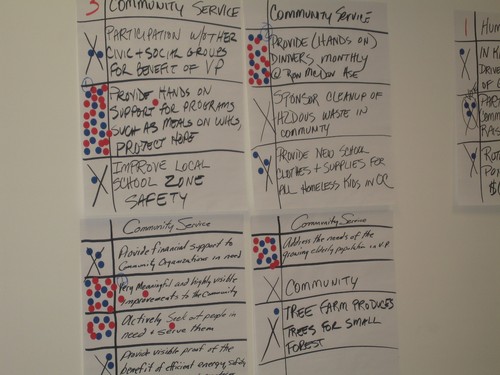 3 COMMUNITY SERVICE
PARTICIPATION W/OTHER
CIVIC + SOCIAL GROUPS
FOR BENEFIT OF VP
PROVIDE HANDS ON
SUPPORT FOR PROGRAMS
SUCH AS MEALS ON WHLS,
PROTECT HOPE
IMPROVE LOCAL
SCHOOL ZONE
SAFETY
COMMUNITY SERVICE
PROVIDE (HANDS ON)
DINNERS MONTHLY
@ Ron
SPONSOR CLEANUP OF
HZDOUS WASTE IN
COMMUNITY
PROVIDE NEW SCHOOL
CLOTHES + SUPPLIES FOR
ALL HOMELESS KIDS IN
1 HUM
IN K
DRIVE
OF
PAR
COMM
RA
ROT
PO
Community Service
Provide financial support to
Community Organizations in need
Very Meaningful and highly visible
improvements to the Community
Actively Seek out people in
need & serve them
Provide visible proof of the
benefit of efficient energy, safety
Community Service
Address the needs of the
growing elderly population in V.P.
COMMUNITY
TREE FARM PRODUCES
TREES FOR SMALL
FOREST